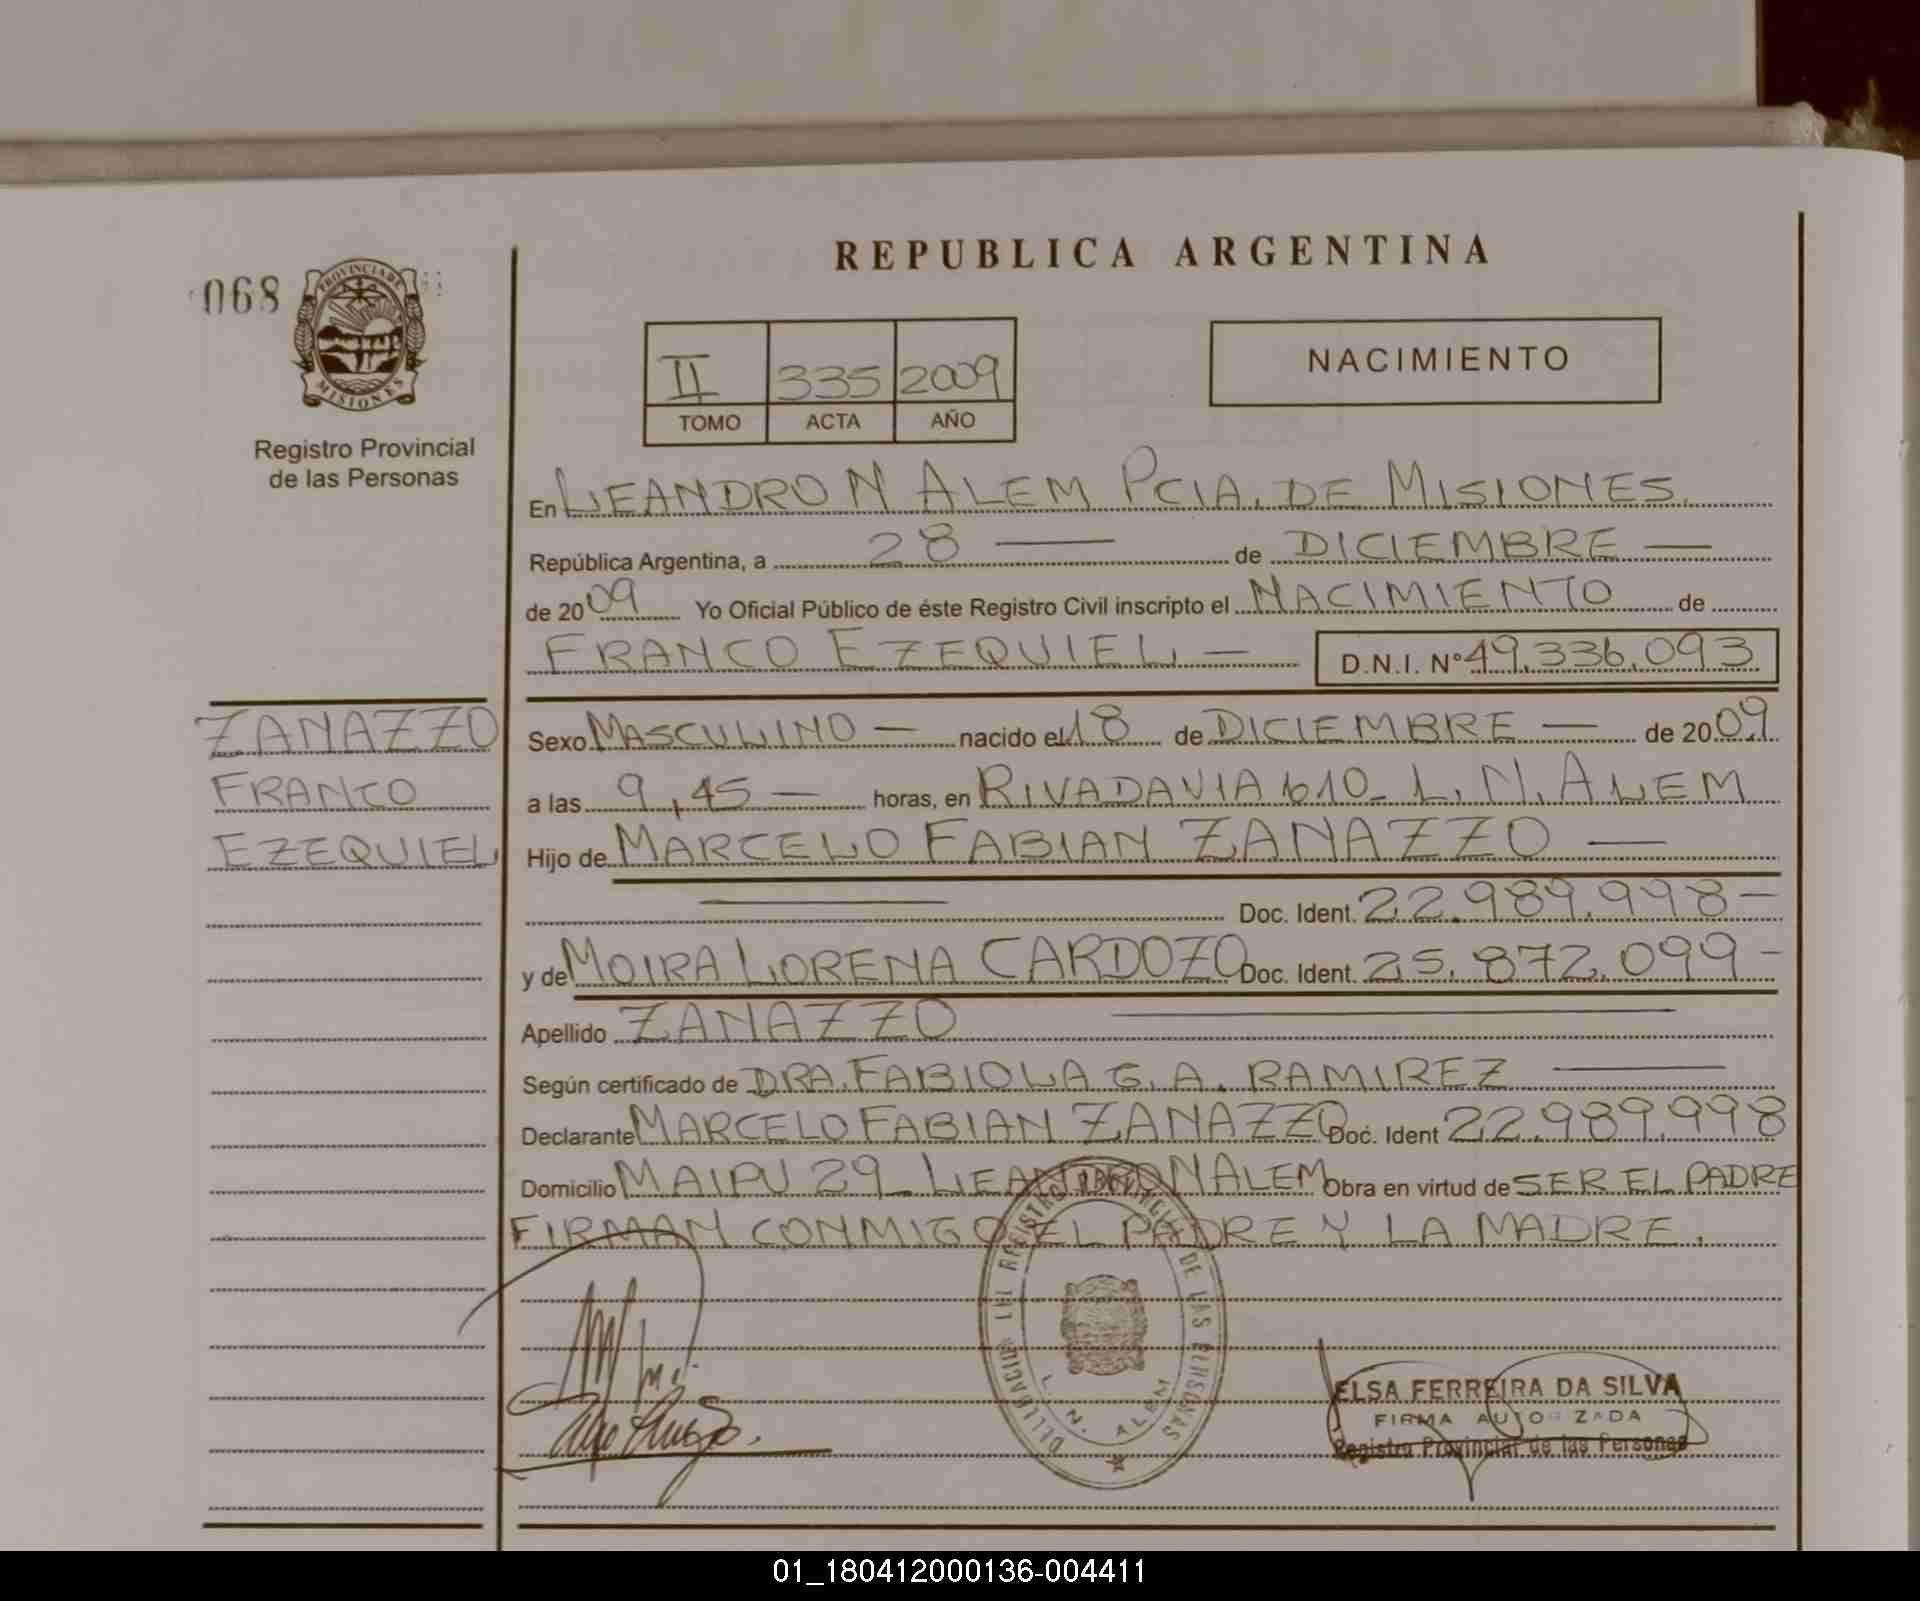 REPUBLICA ARGENTINA
068
PROVINCIA DE
MISIONES
Registro Provincial
de las Personas
II 335 2009
TOMO ACTA AÑO
NACIMIENTO
En LEANDRO N ALEM PCIA. DE MISIONES.
República Argentina, a 28 — de DICIEMBRE —
de 2009 Yo Oficial Público de éste Registro Civil inscripto el NACIMIENTO de
FRANCO EZEQUIEL — D.N.I. N° 49.336.093
ZANAZZO
FRANCO
EZEQUIEL
Sexo MASCULINO — nacido el 18 de DICIEMBRE — de 2009
a las 9,45 — horas, en RIVADAVIA 610_ L. N. ALEM
Hijo de MARCELO FABIAN ZANAZZO —
— Doc. Ident. 22.989.998-
y de MOIRA LORENA CARDOZO Doc. Ident. 25.872.099-
Apellido ZANAZZO —
Según certificado de DRA. FABIOLA G. A. RAMIREZ —
Declarante MARCELO FABIAN ZANAZZO Doc. Ident 22.989.998
Domicilio MAIPU 29_ LEANDRO N ALEM Obra en virtud de SER EL PADRE
FIRMAN CONMIGO EL PADRE Y LA MADRE.
DELEGACION DEL REGISTRO PROVINCIAL DE LAS PERSONAS
L. N. ALEM
ELSA FERREIRA DA SILVA
FIRMA AUTORIZADA
Registro Provincial de las Personas
01_180412000136-004411